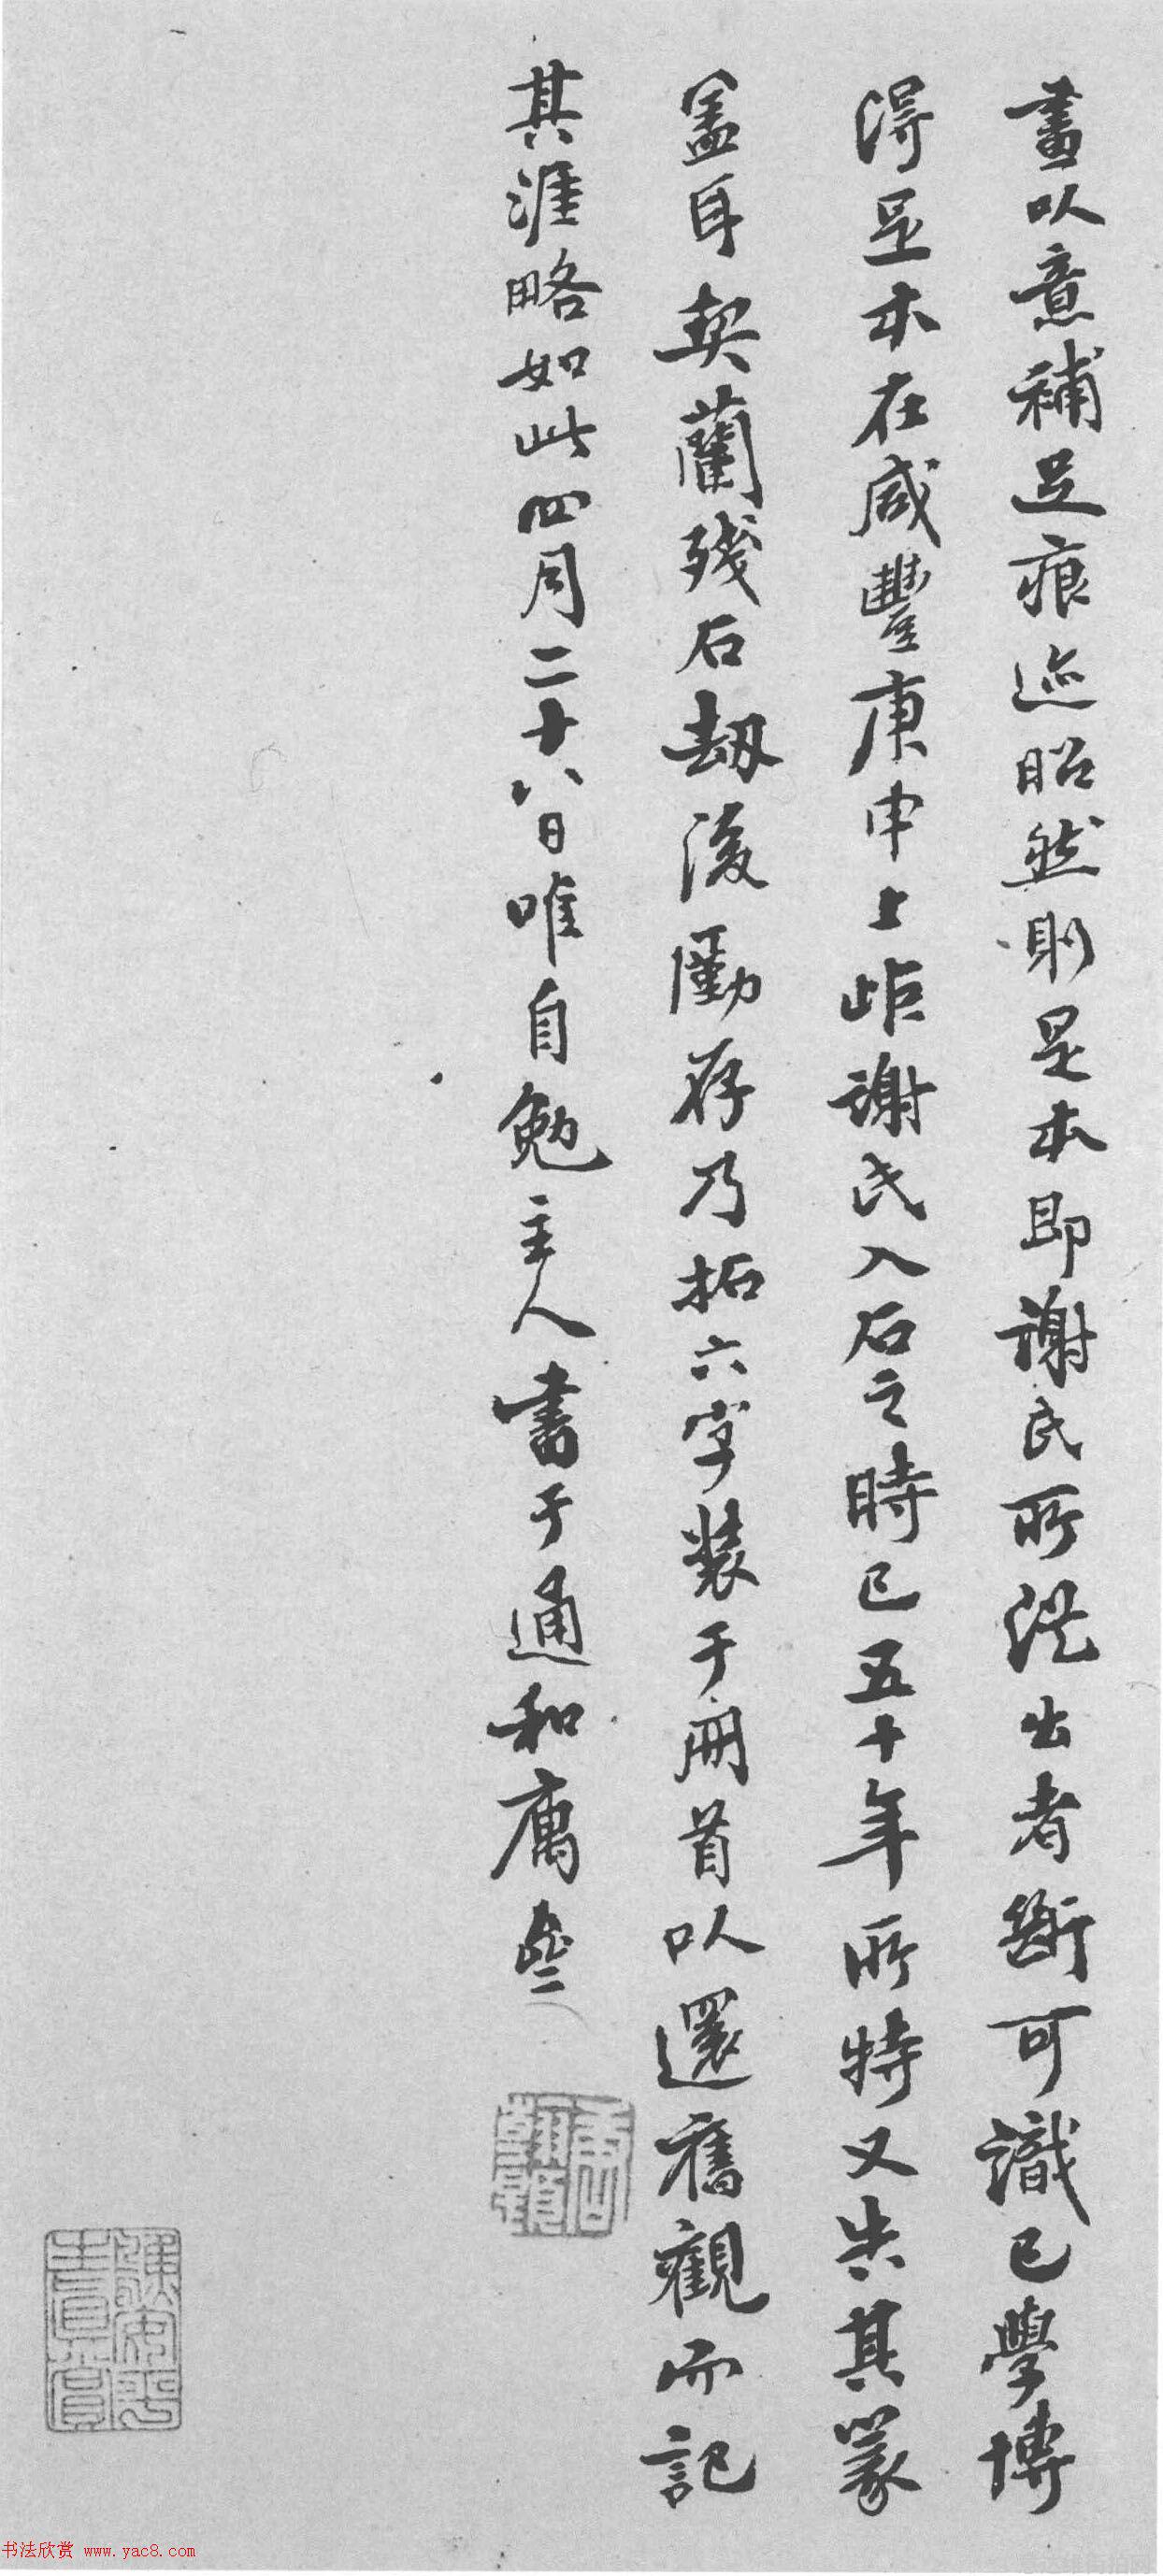 畫以意補足痕迹昭然則是本即謝氏所從出者斷可識已學博
得足本在咸豐庚申上岠謝氏入石之時已五十年所特又失其篆
盖耳契蘭殘石劫後廑存乃拓六字装于冊首以還舊觀而記
其涯略如此四月二十八日唯自勉主人書于通和
书法欣赏 www.yac8.com